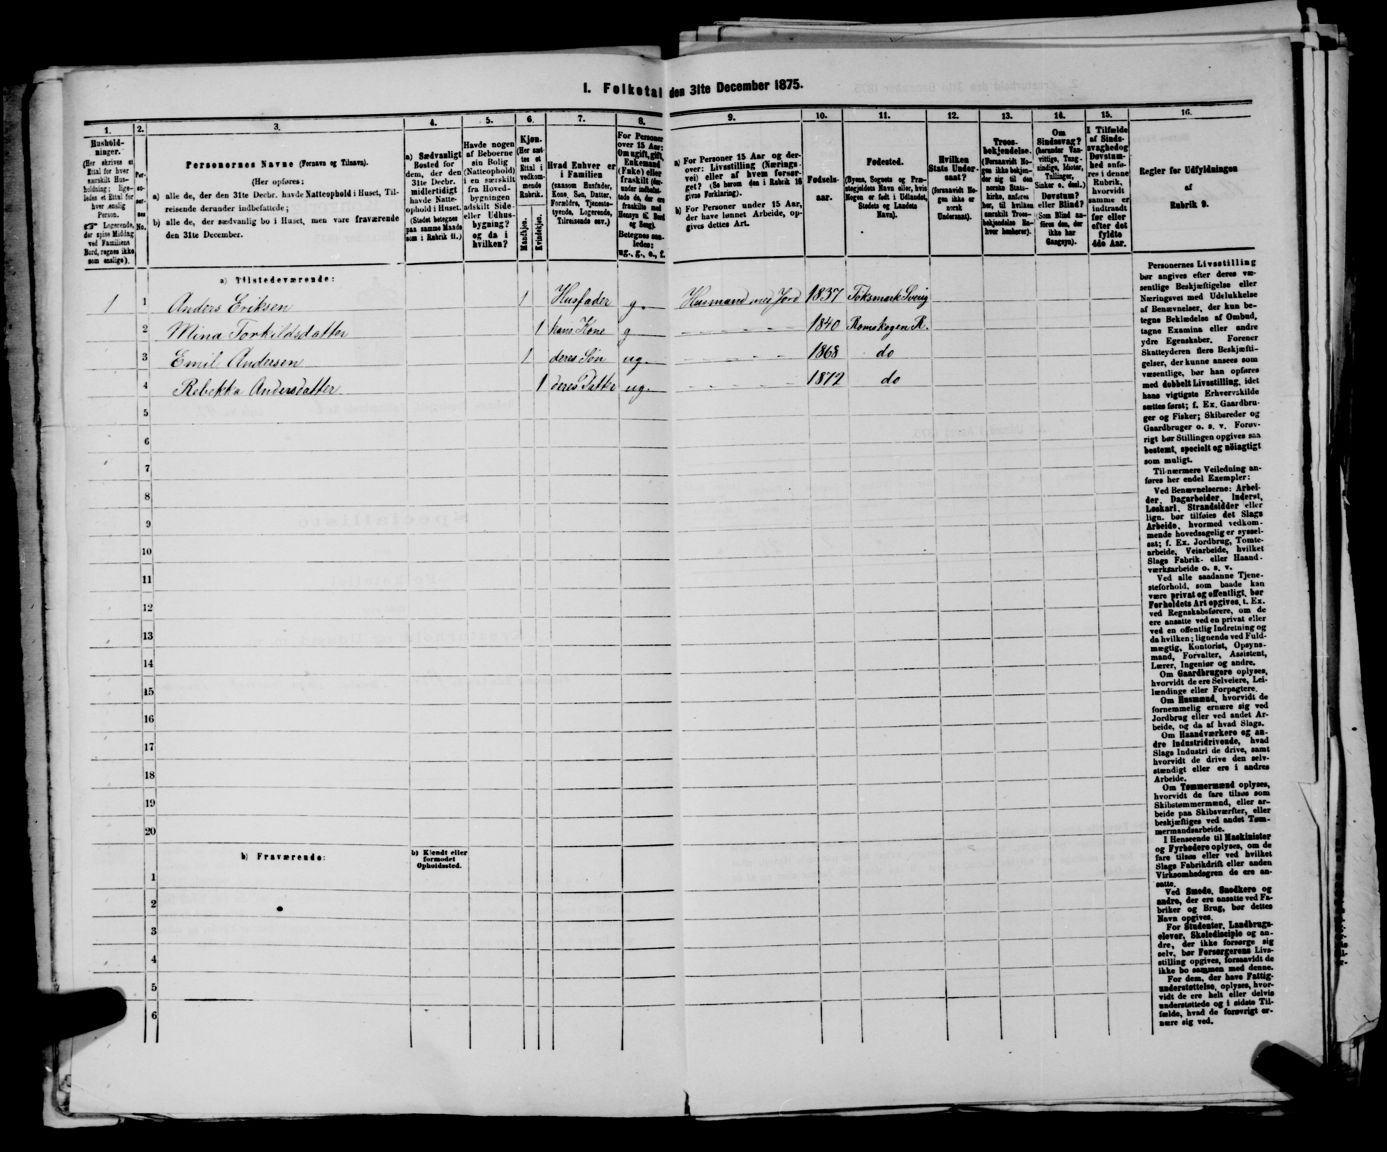 I. Folketal den 31te December 1875.
1. 2. 3. 4. 5. 6. 7. 8. 9. 10. 11. 12. 13. 14. 15. 16.
Hushold-
ninger.
(Her skrives et
Ettal for hver
særskilt Hus-
holdning; lige-
ledes et Ettal for
hver enslig
Person.
☞ Logerende,
der spise Middag
ved Familiens
Bord, regnes ikke
som enslige).
Per-
so-
ner-
nes
No.
Personernes Navne (Fornavn og Tilnavn).
(Her opføres:
a) alle de, der den 31te Decbr. havde Natteophold i Huset, Til-
reisende derunder indbefattede;
b) alle de, der sædvanlig bo i Huset, men vare fraværende
den 31te December.
a) Sædvanligt
Bosted for
dem, der den
31te Decbr.
midlertidigt
havde Natte-
ophold i Huset.
(Stedet betegnes
paa samme Maade
som i Rubrik 11.)
Havde nogen
af Beboerne
sin Bolig
(Natteophold)
i en særskilt
fra Hoved-
bygningen
adskilt Side-
eller Udhus-
bygning?
og da i
hvilken?
Kjøn.
(Her sæt-
tes et
Ettal i
vedkom-
mende
Rubrik.
Mandkjøn.
Kvindekjøn.
Hvad Enhver er
i Familien
(saasom Husfader,
Kone, Søn, Datter,
Forældre, Tjeneste-
tyende, Logerende,
Tilreisende osv.)
For Personer
over 15 Aar:
Om ugift, gift,
Enkemand
(Enke) eller
fraskilt (der-
under indbefat-
tede de, der ere
fraskilte med
Hensyn til Bord
og Seng).
Betegnes saa-
ledes:
ug., g., e., f.
a) For Personer 15 Aar og der-
over: Livsstilling (Nærings-
vei) eller af hvem forsør-
get? (Se herom den i Rubrik 16
givne Forklaring).
b) For Personer under 15 Aar,
der have lønnet Arbeide, op-
gives dettes Art.
Fødsels-
aar.
Fødested.
(Byens, Sognets og Præ-
stegjeldets Navn eller, hvis
Nogen er født i Udlandet,
Stedets og Landets
Navn).
Hvilken
Stats Under-
saat?
(forsaavidt No-
gen ikke er
norsk
Undersaat).
Troes-
bekjendelse.
(Forsaavidt No-
gen ikke bekjen-
der sig til den
norske Stats-
kirke, anføres
her, til hvilken
særskilt Troes-
bekjendelse En-
hver henhører).
Om
Sindssvag?
(herunder Van-
vittige, Tung-
sindige, Idioter,
Tullinger,
Sinker o. desl.)
Døvstum?
eller Blind?
(Som Blind an-
føres den, der
ikke har
Gangsyn).
I Tilfælde
af Sinds-
svaghed og
Døvstum-
hed anfø-
res i denne
Rubrik,
hvorvidt
samme er
indtraadt
før eller
efter det
fyldte
4de Aar.
Regler for Udfyldningen
af
Rubrik 9.
a) Tilstedeværende:
1 1 Anders Eriksen 1 Husfader g. Husmand med Jord 1837 Foksmark Sverig
2 Mina Torkildsdatter 1 hans Kone g 1840 Romskogen K.
3 Emil Andersen 1 deres Søn ug. 1868 do
4 Rebekka Andersdatter. 1 deres Datter ug. 1872 do
5
6
7
8
9
10
11
12
13
14
15
16
17
18
19
20
b) Fraværende: b) Kjendt eller
formodet
Opholdssted.
1
2
3
4
5
6
Personernes Livsstilling
bør angives efter deres væ-
sentlige Beskjæftigelse eller
Næringsvei med Udelukkelse
af Benævnelser, der kun be-
tegne Beklædelse af Ombud,
tagne Examina eller andre
ydre Egenskaber. Forener
Skatteyderen flere Beskjæfti-
gelser, der kunne ansees som
væsentlige, bør han opføres
med dobbelt Livsstilling, idet
hans vigtigste Erhvervskilde
sættes først; f. Ex. Gaardbru-
ger og Fisker; Skibsreder og
Gaardbruger o. s. v. Forøv-
rigt bør Stillingen opgives saa
bestemt, specielt og nøiagtigt
som muligt.
Til nærmere Veiledning an-
føres her endel Exempler:
Ved Benævnelserne: Arbei-
der, Dagarbeider, Inderst,
Løskarl, Strandsidder eller
lign. bør tilføies det Slags
Arbeide, hvormed vedkom-
mende hovedsagelig er syssel-
sat; f. Ex. Jordbrug, Tomte-
arbeide, Veiarbeide, hvilket
Slags Fabrik- eller Haand-
værksarbeide o. s. v.
Ved alle saadanne Tjene-
steforhold, som baade kan
være privat og offentligt, bør
Forholdets Art opgives, f. Ex.
ved Regnskabsførere, om de
ere ansatte ved en privat eller
ved en offentlig Indretning og
da hvilken; lignende ved Fuld-
mægtig, Kontorist, Opsyns-
mand, Forvalter, Assistent,
Lærer, Ingeniør og andre.
Om Gaardbrugere oplyses,
hvorvidt de ere Selveiere, Lei-
lændinge eller Forpagtere.
Om Husmænd, hvorvidt de
fornemmelig ernære sig ved
Jordbrug eller ved andet Ar-
beide, og da af hvad Slags.
Om Haandværkere og an-
dre Industridrivende, hvad
Slags Industri de drive, samt
hvorvidt de drive den selv-
stændigt eller ere i andres
Arbeide.
Om Tømmermænd oplyses,
hvorvidt de fare tilsøs som
Skibstømmermænd, eller ar-
beide paa Skibsværfter, eller
beskjæftiges ved andet Tøm-
mermandsarbeide.
I Henseende til Maskinister
og Fyrbødere oplyses, om de
fare tilsøs eller ved hvilket
Slags Fabrikdrift eller anden
Virksomhedsgren de ere an-
satte.
Ved Smede, Snedkere og
andre, der ere ansatte ved Fa-
briker og Brug, bør dettes
Navn opgives.
For Studenter, Landbrugs-
elever, Skoledisciple og an-
dre, der ikke forsørge sig
selv, bør Forsørgerens Livs-
stilling opgives, forsaavidt de
ikke bo sammen med denne.
For dem, der have Fattig-
understøttelse, oplyses, hvor-
vidt de ere helt eller delvis
understøttede og i sidste Til-
fælde, hvad de forøvrigt er-
nære sig ved.